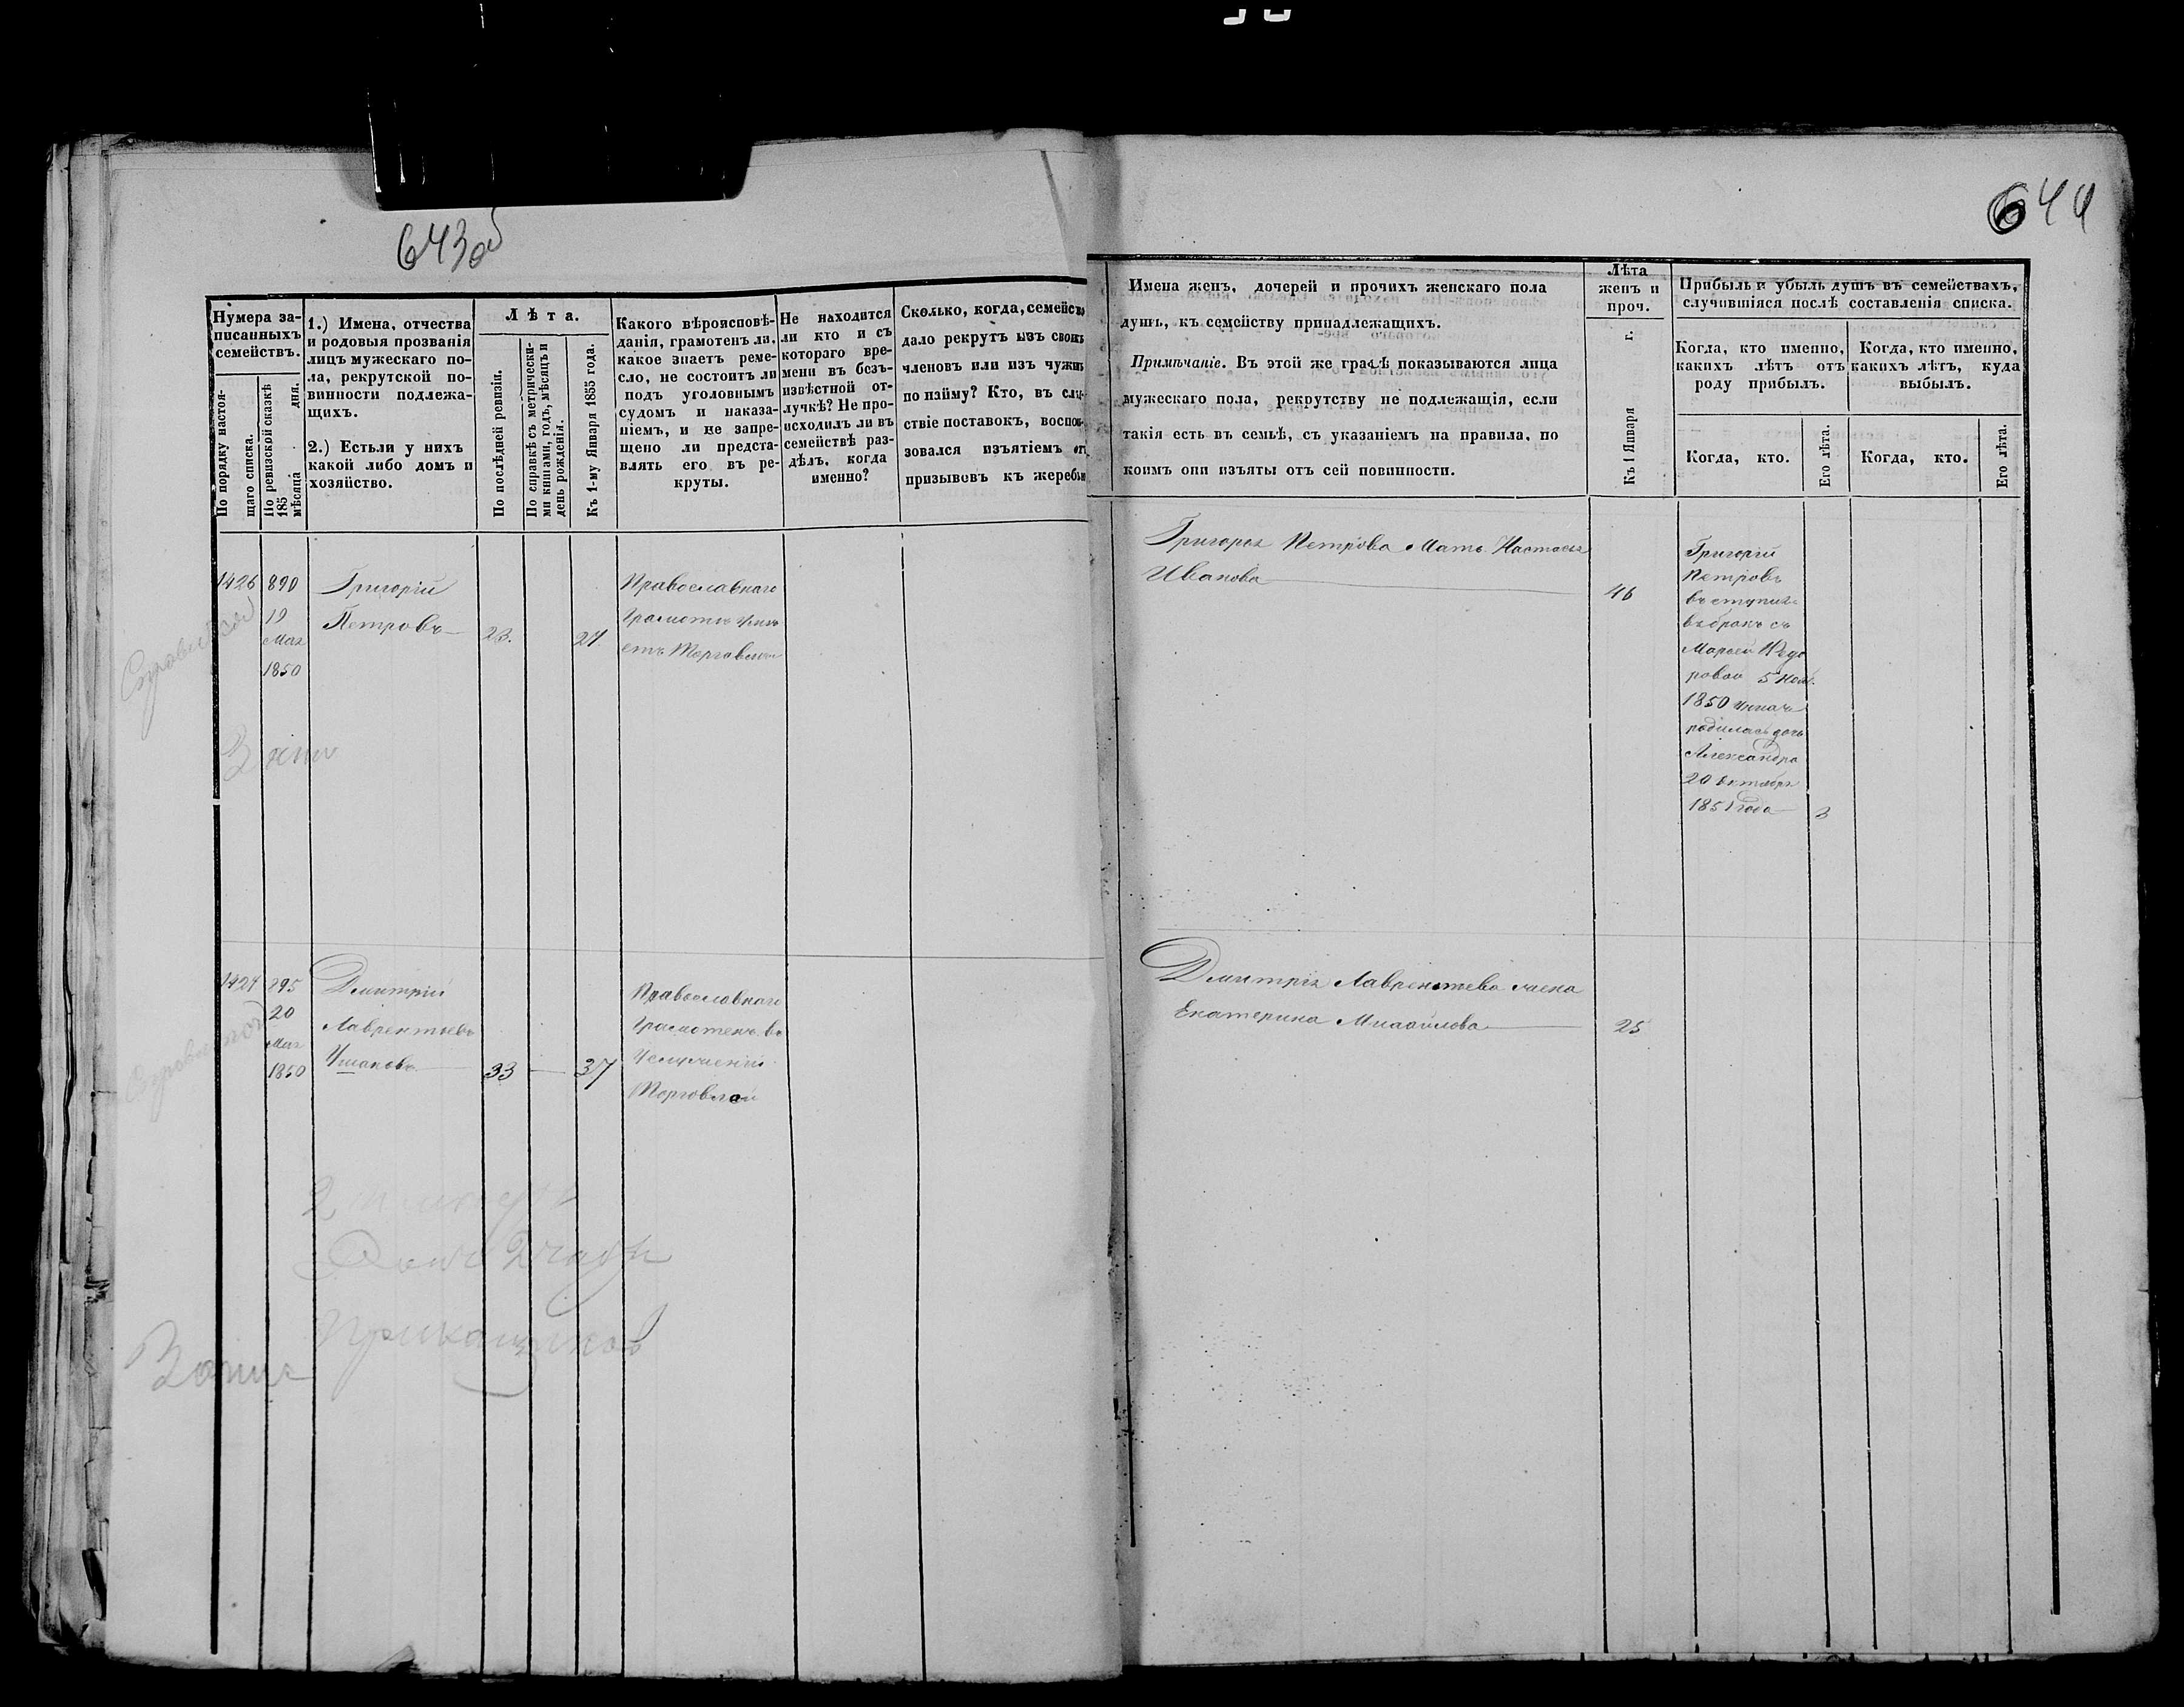 643об
644
Нумера за-
писанныхъ
семействъ.
По порядку настоя-
щаго списка.
По ревизской сказкѣ
185 мѣсяца дня.
1.) Имена, отчества
и родовыя прозванія
лицъ мужескаго по-
ла, рекрутской по-
винности подлежа-
щихъ.
2.) Естьли у нихъ
какой либо домъ и
хозяйство.
Лѣта.
По послѣдней ревизіи.
По справкѣ съ метрически-
ми книгами, годъ, мѣсяцъ и
день рожденія.
Къ 1-му Января 1855 года.
Какого вѣроисповѣ-
данія, грамотенъ ли,
какое знаетъ реме-
сло, не состоитъ ли
подъ уголовнымъ
судомъ и наказа-
ніемъ, и не запре-
щено ли предста-
влять его въ ре-
круты.
Не находится
ли кто и съ
котораго вре-
мени въ безъ-
извѣстной от-
лучкѣ? Не про-
исходилъ ли въ
семействѣ раз-
дѣлъ, когда
именно?
Сколько, когда, семейство
дало рекрутъ изъ своихъ
членовъ или изъ чужихъ
по найму? Кто, въ слѣд-
ствіе поставокъ, восполь-
зовался изъятіемъ от
призывовъ къ жеребью
Имена женъ, дочерей и прочихъ женскаго пола
душъ, къ семейству принадлежащихъ.
Примѣчаніе. Въ этой же графѣ показываются лица
мужескаго пола, рекрутству не подлежащія, если
такія есть въ семьѣ, съ указаніемъ на правила, по
коимъ они изъяты отъ сей повинности.
Лѣта
женъ и
проч.
Къ 1 Января г.
Прибыль и убыль душъ въ семействахъ,
случившіяся послѣ составленія списка.
Когда, кто именно,
какихъ лѣтъ отъ
роду прибылъ.
Когда, кто именно,
какихъ лѣтъ, куда
выбылъ.
Когда, кто.
Его лѣта.
Когда, кто.
Его лѣта.
1426 890
19
Мая
1850
Григорій
Петровъ
23.
27
Православнаго
Грамотѣ
Торговлею
Григорья Петрова Мать Настасья
Иванова
46
Григорій
Петровъ
вступилъ
въ бракъ съ
Марьей Ѳедо
ровой 5 Нояб.
1850
родилась дочь
Александра
20 Октября
1851 года
3
1427 895
20
Мая
1850
Дмитрій
Лаврентьевъ
Ушаковъ
33
37
Православнаго
Грамотенъ въ
Торговлей
Дмитрія Лаврентьева жена
Екатерина Михайлова
25